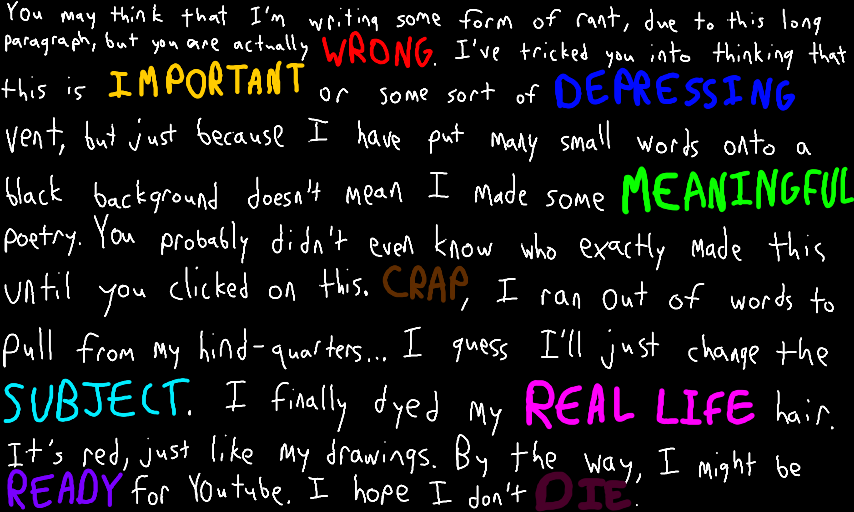 You may think that I'm writing some form of rant, due to this long
paragraph, but you are actually WRONG. I've tricked you into thinking that
this is IMPORTANT or some sort of DEPRESSING
vent, but just because I have put many small words onto a
black background doesn't mean I made some MEANINGFUL
poetry. You probably didn't even know who exactly made this
until you clicked on this. CRAP, I ran out of words to
pull from my hind-quarters... I guess I'll just change the
SUBJECT. I finally dyed my REAL LIFE hair.
It's red, just like my drawings. By the way, I might be
READY for Youtube. I hope I don't DIE.